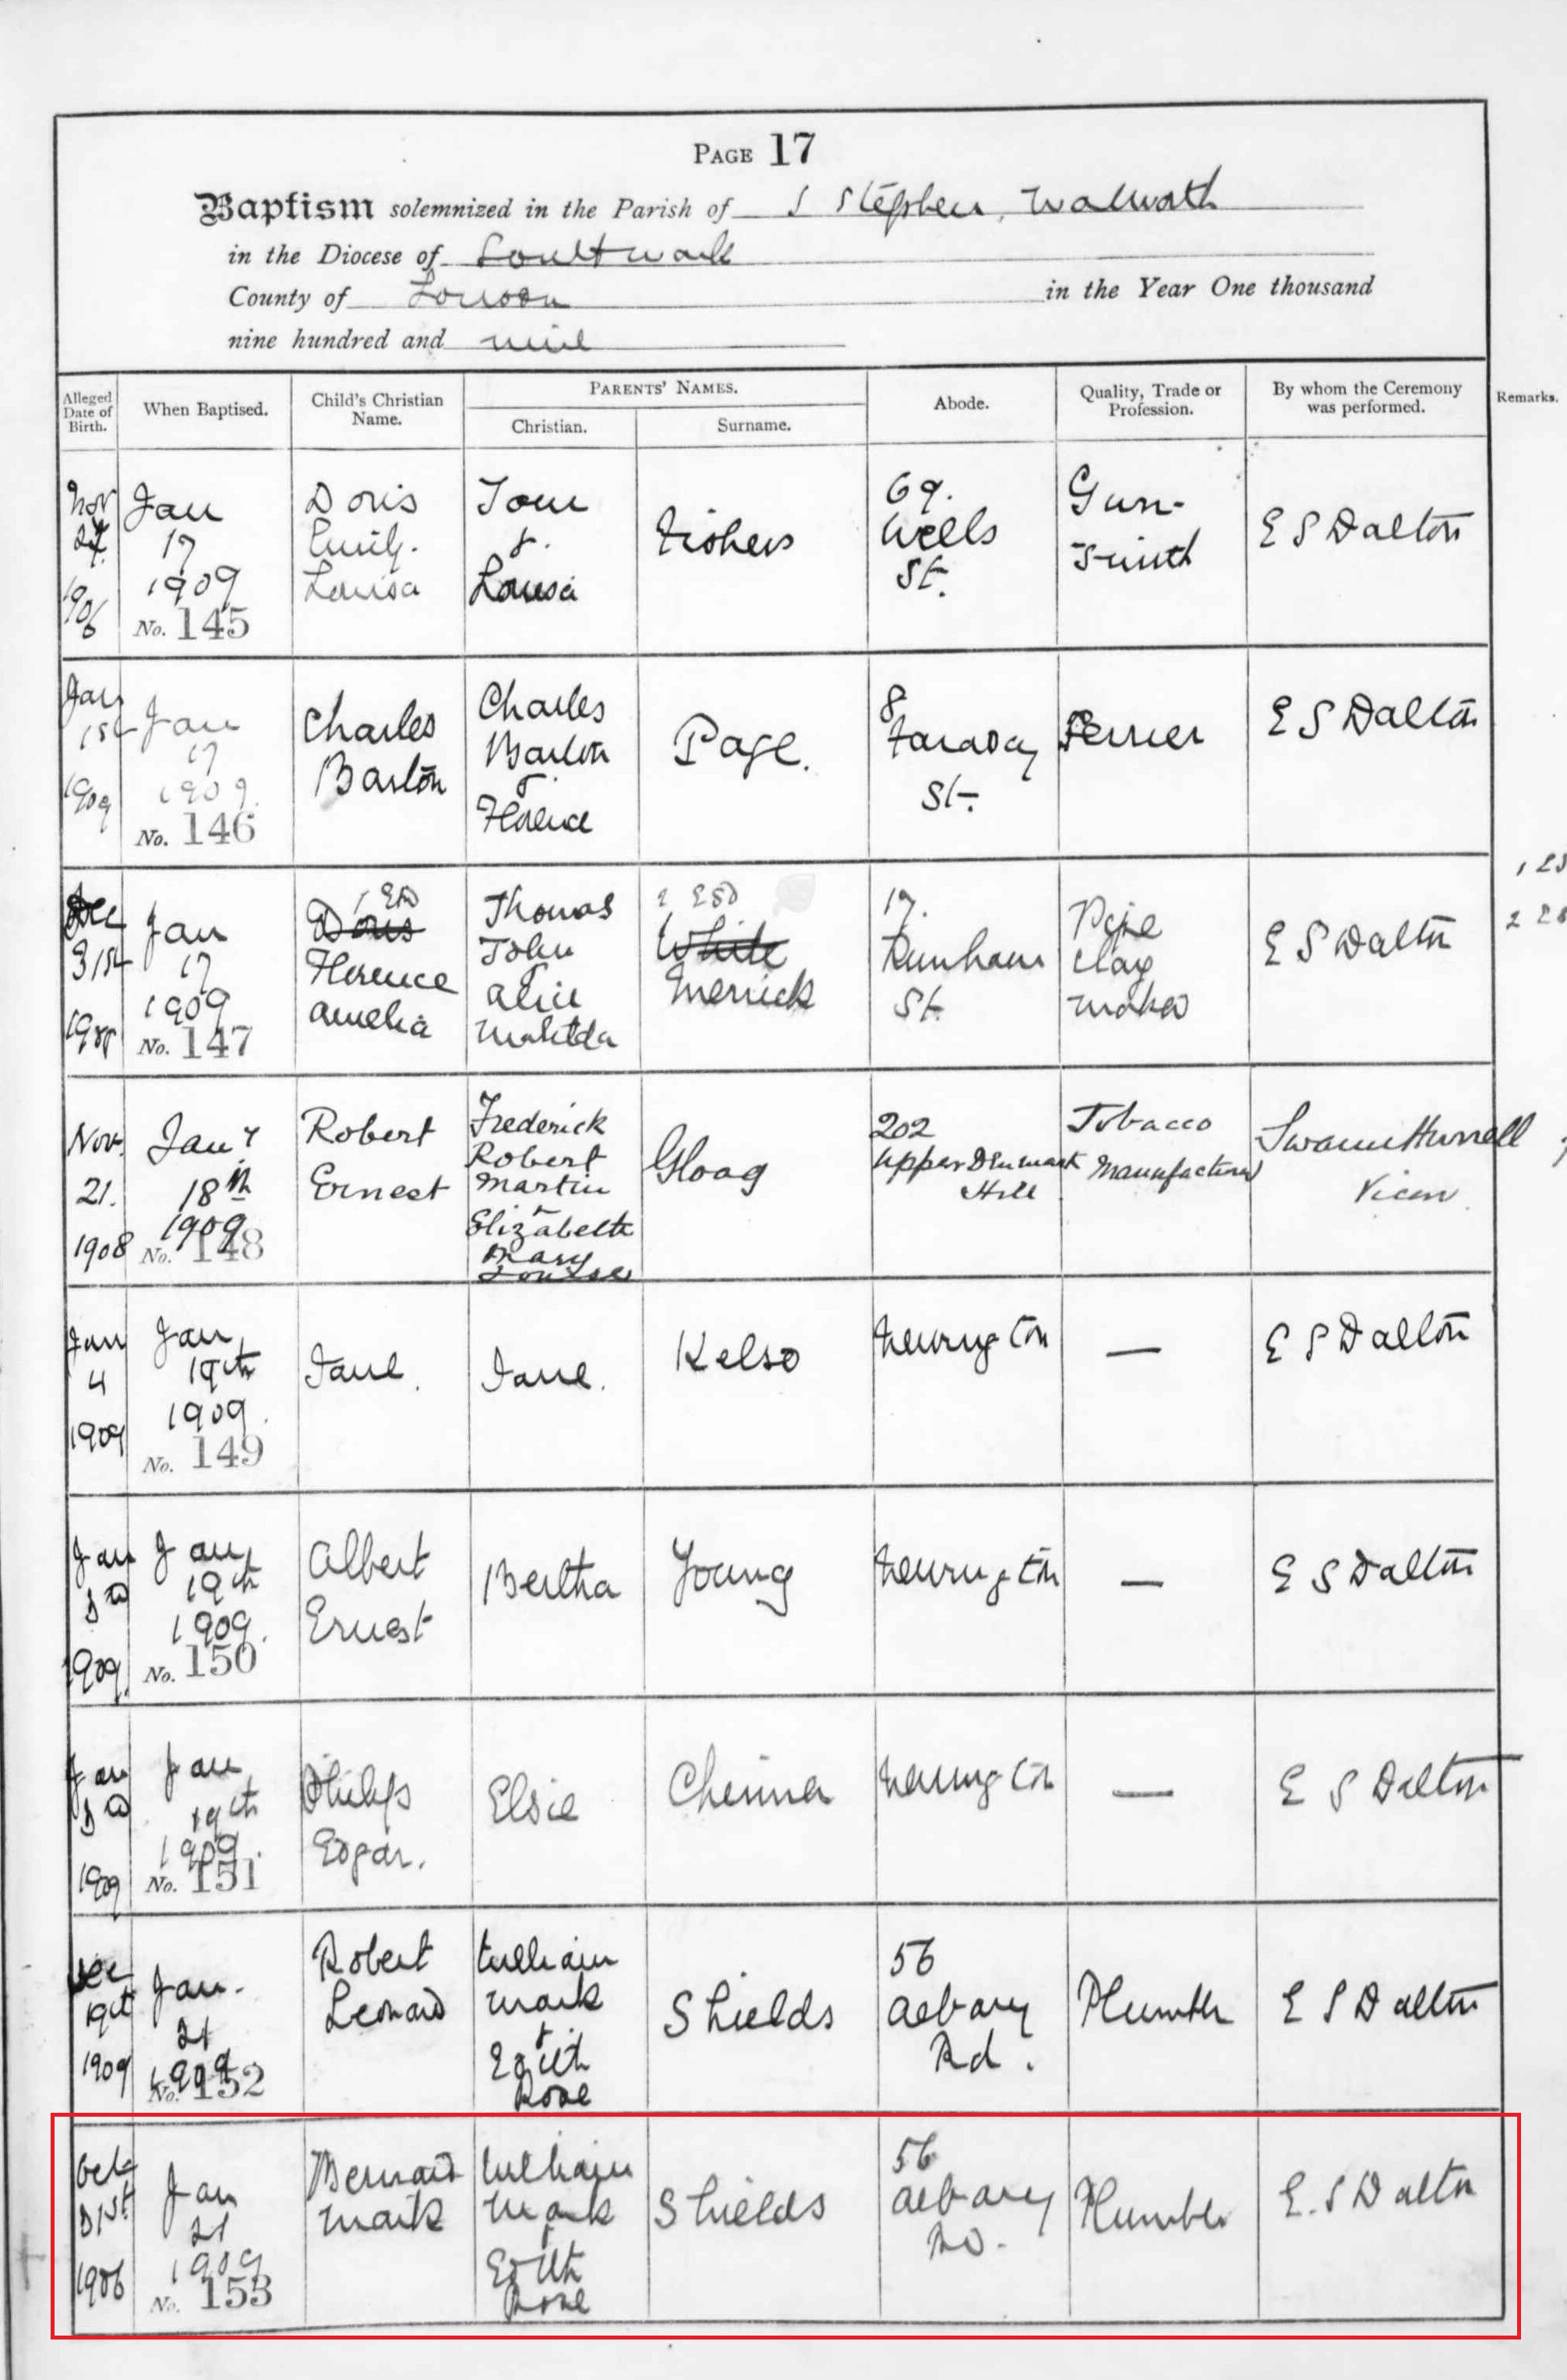 PAGE 17
Baptism solemnized in the Parish of S Stephen, Walworth
in the Diocese of Southwark
County of London in the Year One thousand
nine hundred and nine
Alleged Date of Birth.
When Baptised.
Child's Christian Name.
PARENTS' NAMES.
Christian.
Surname.
Abode.
Quality, Trade or Profession.
By whom the Ceremony was performed.
Remarks.
Nov 24 1906
Jan 17 1909
No. 145
Doris Emily Louisa
Tom & Louisa
69. Wells St.
Gun-Smith
E S Dalton
Jan 1st 1909
Jan 17 1909.
No. 146
Charles Barton
Charles Barton & Florence
Page.
8 Faraday St.
E S Dalton
Dec 31st 1908
Jan 17 1909
No. 147
1 ESD
Doris
Florence Amelia
Thomas John & Alice Matilda
2 ESD
White
Merrick
17. St.
Pipe Clay Maker
E S Dalton
Nov. 21. 1908
Jany 18th 1909
No. 148
Robert Ernest
Frederick Robert Martin & Elizabeth Mary Louise
Gloag
202 Upper Denmark Hill
Tobacco Manufacturer
Vicar
Jan 4 1909
Jan 19th 1909.
No. 149
Jane.
Jane.
Kelso
Newington
—
E S Dalton
Jan 3rd 1909.
Jan 19th 1909.
No. 150
Albert Ernest
Bertha
Young
Newington
—
E S Dalton
Jan 3rd 1909
Jan 19th 1909.
No. 151
Philip Edgar.
Elsie
Newington
—
E S Dalton
Dec 19th 1909
Jan. 21 1909
No. 152
Robert Leonard
William Mark & Edith Rose
Shields
56 Albany Rd.
Plumber
E S Dalton
Oct 31st 1906
Jan 21 1909
No. 153
Bernard Mark
William Mark & Edith Rose
Shields
56 Albany Rd.
Plumber
E. S Dalton